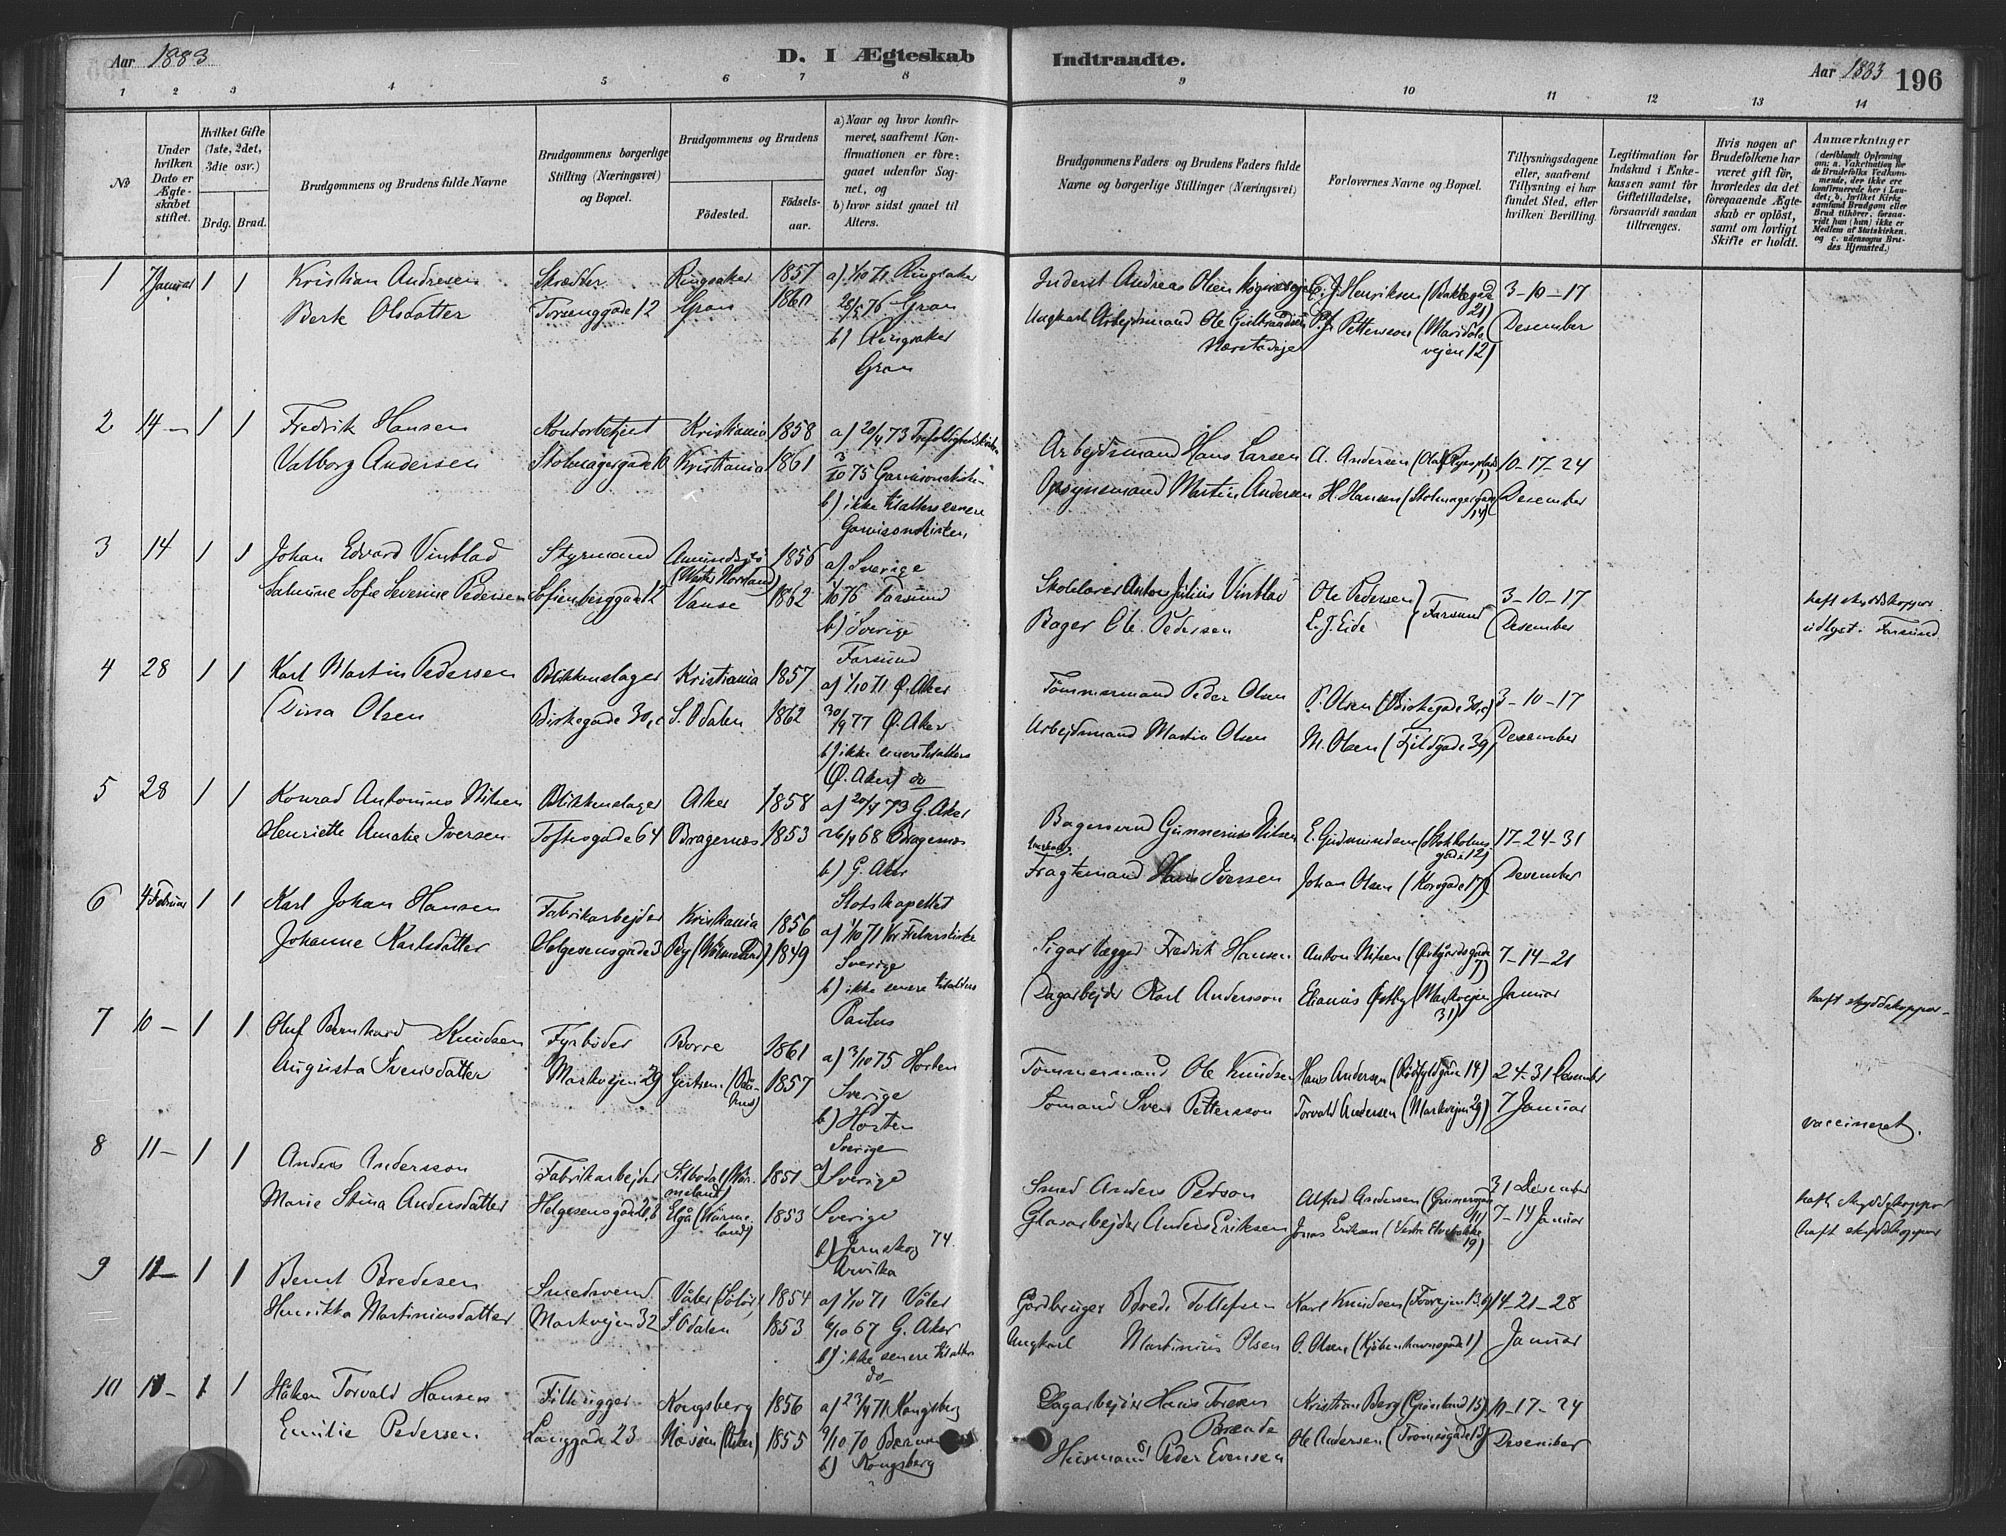 Aar 1883
D. I Ægteskab Indtraadte.
Aar 1883 196
1 2 3 4 5 6 7 8 9 10 11 12 13 14
No
Under hvilken Dato er Ægteskabet stiftet.
Hvilket Gifte (1ste, 2det, 3die osv.)
Brdg. Brud.
Brudgommens og Brudens fulde Navne
Brudgommens borgerlige Stilling (Næringsvei) og Bopæl.
Brudgommens og Brudens
Födested.
Födselsaar.
a) Naar og hvor konfirmeret, saafremt Konfirmationen er foregaaet udenfor Sognet, og
b) hvor sidst gaaet til Alters.
Brudgommens Faders og Brudens Faders fulde Navne og borgerlige Stillinger (Næringsvei)
Forlovernes Navne og Bopæl.
Tillysningsdagene eller, saafremt Tillysning ei har fundet Sted, efter hvilken Bevilling.
Legitimation for Indskud i Enkekassen samt for Giftetilladelse, forsaavidt saadan tiltrænges.
Hvis nogen af Brudefolkene har været gift för, hvorledes da det foregaaende Ægteskab er oplöst, samt om lovligt Skifte er holdt.
Anmærkninger
(deriblandt Oplysning om: a. Vakcination for de Brudefolks Vedkommende, der ikke ere konfirmerede her i Landet; b. hvilket Kirkesamfund Brudgom eller Brud tilhörer, forsaavidt han (hun) ikke er Medlem af Statskirken, og c. udensogns Brudes Hjemsted.)
1 7 Januar 1 1 Kristian Andresen Skrædder Ringsaker 1857 a) 1/10 71 Ringsaker
Berte Olsdatter Gran 1860 Gran
b) Ringsaker
Gran
Inderst Andreas Olsen E. J. Henriksen (Bakkegade 21) 3-10-17
Ungkarl Arbejdsmand Ole P. J. Pettersson (Maridalsvejen 12) Desember
2 14 - 1 1 Fredrik Hansen Kontorbetjent Kristiania 1858 a) 20/4 73 Trefoldighedskirken
Valborg Andersen Stolmagergade 10 Kristiania 1861 3/10 75 Garnisonskirken
b) ikke til alters senere
Garnisonskirken
Arbejdsmand Hans Larsen A. Andersen (Olaf Ryes plads 1) 10-17-24
Opsynsmand Martin Andersen H. Hansen (Stolmagergade 14) Desember
3 14 1 1 Johan Edvard Vinblad Styrmand 1856 a) Sverige
Sofie Severine Pedersen Sofienberggade 12 Vanse 1862 1/10 76 Farsund
b) Sverige
Farsund
Skolelærer Anton Julius Vinblad Ole Pedersen 3-10-17 haft skyddskoppor.
Bager Ole Pedersen E. J. Eide Farsund Desember udlyst i Farsund.
4 28 1 1 Karl Martin Pedersen Blikkenslager Kristiania 1857 a) 1/10 71 Ø. Aker
Dina Olsen Birkegade 30,c S. Odalen 1862 30/9 77 Ø. Aker
b) ikke senere til alters
(Ø. Aker) do
Tømmermand Peder Olsen P. Olsen (Birkegade 30,c) 3-10-17
Arbejdsmand Martin Olsen M. Olsen (Fjeldgade 39) Desember
5 28 1 1 Konrad Antonius Nilsen Blikkenslager Aker 1858 a) 20/4 73 G. Aker
Henriette Amalie Iversen Toftesgade 64 Bragernæs 1853 26/4 68 Bragernæs
b) G. Aker
Slotskapellet
Bagersvend Gunnerius Nilsen E. Gudmundsen (Stokholmsgade 12) 17-24-31
Fragtemand Hans Iversen Johan Olsen (Korsgade 17) Desember
6 4 Februar 1 1 Karl Johan Hansen Fabrikarbejder Kristiania 1856 a) 1/10 71 Vor Frelserskirke
Johanne Karlsdatter Helgesensgade 3 (Wärmeland) 1849 Sverige
b) ikke senere til alters
Paulus
Sigarlægger Fredrik Hansen Anton Nilsen (Østgårdsgade 7) 7-14-21
Dagarbejder Karl Andersson Elanius Østby (Markvejen 31) Januar haft skyddskoppor -
7 10 - 1 1 Oluf Bernhard Knudsen Fyrbøder Borre 1861 a) 3/10 75 Horten
Augusta Svensdatter Markvejen 29 1857 Sverige
b) Horten
Sverige
Tømmermand Ole Knudsen Hans Andersen (Rødfyldgade 14) 24-31 Desember
Sømand Sven Pettersson Torvald Andersen (Markvejen 29) 7 Januar vaccineret.
8 11 - 1 1 Anders Andersson Fabrikarbejder Silbodal (Wärmeland) 1851 a) Sverige
Marie Stina Andersdatter Helgesensgade Elgå (Wärmeland) 1853 Sverige
b) Jernskog 74.
Arvika
Smed Anders Person Alfred Andersen 31 Desember haft skyddskoppor
Glasarbejder Anders Eriksen Jonas Eriksen (Vestre Elvebakke 19) 7-14 Januar haft skyddskoppor
9 11 - 1 1 Bernt Bredesen Smedsvend Våler (Solør) 1854 a) 1/10 71 Våler
Henrikka Martiniusdatter Markvejen 32 S. Odalen 1853 6/10 67 G. Aker
b) ikke senere til alters
do
Gårdbruger Brede Tollefsen Karl Knudsen 14-21-28
Ungkarl Martinius Olsen O. Olsen (Kjøbenhavnsgade 1) Januar
10 11 - 1 1 Håken Torvald Hansen Filhugger Kongsberg 1856 a) 23/4 71 Kongsberg
Emilie Pedersen Langgade 23 (Aker) 1855 9/10 70
b) Kongsberg
Dagarbejder Hans Kristian Berg (Grønland 15) 10-17-24
Husmand Peder Evensen Ole Andersen (Tromsøgade 13) Desember